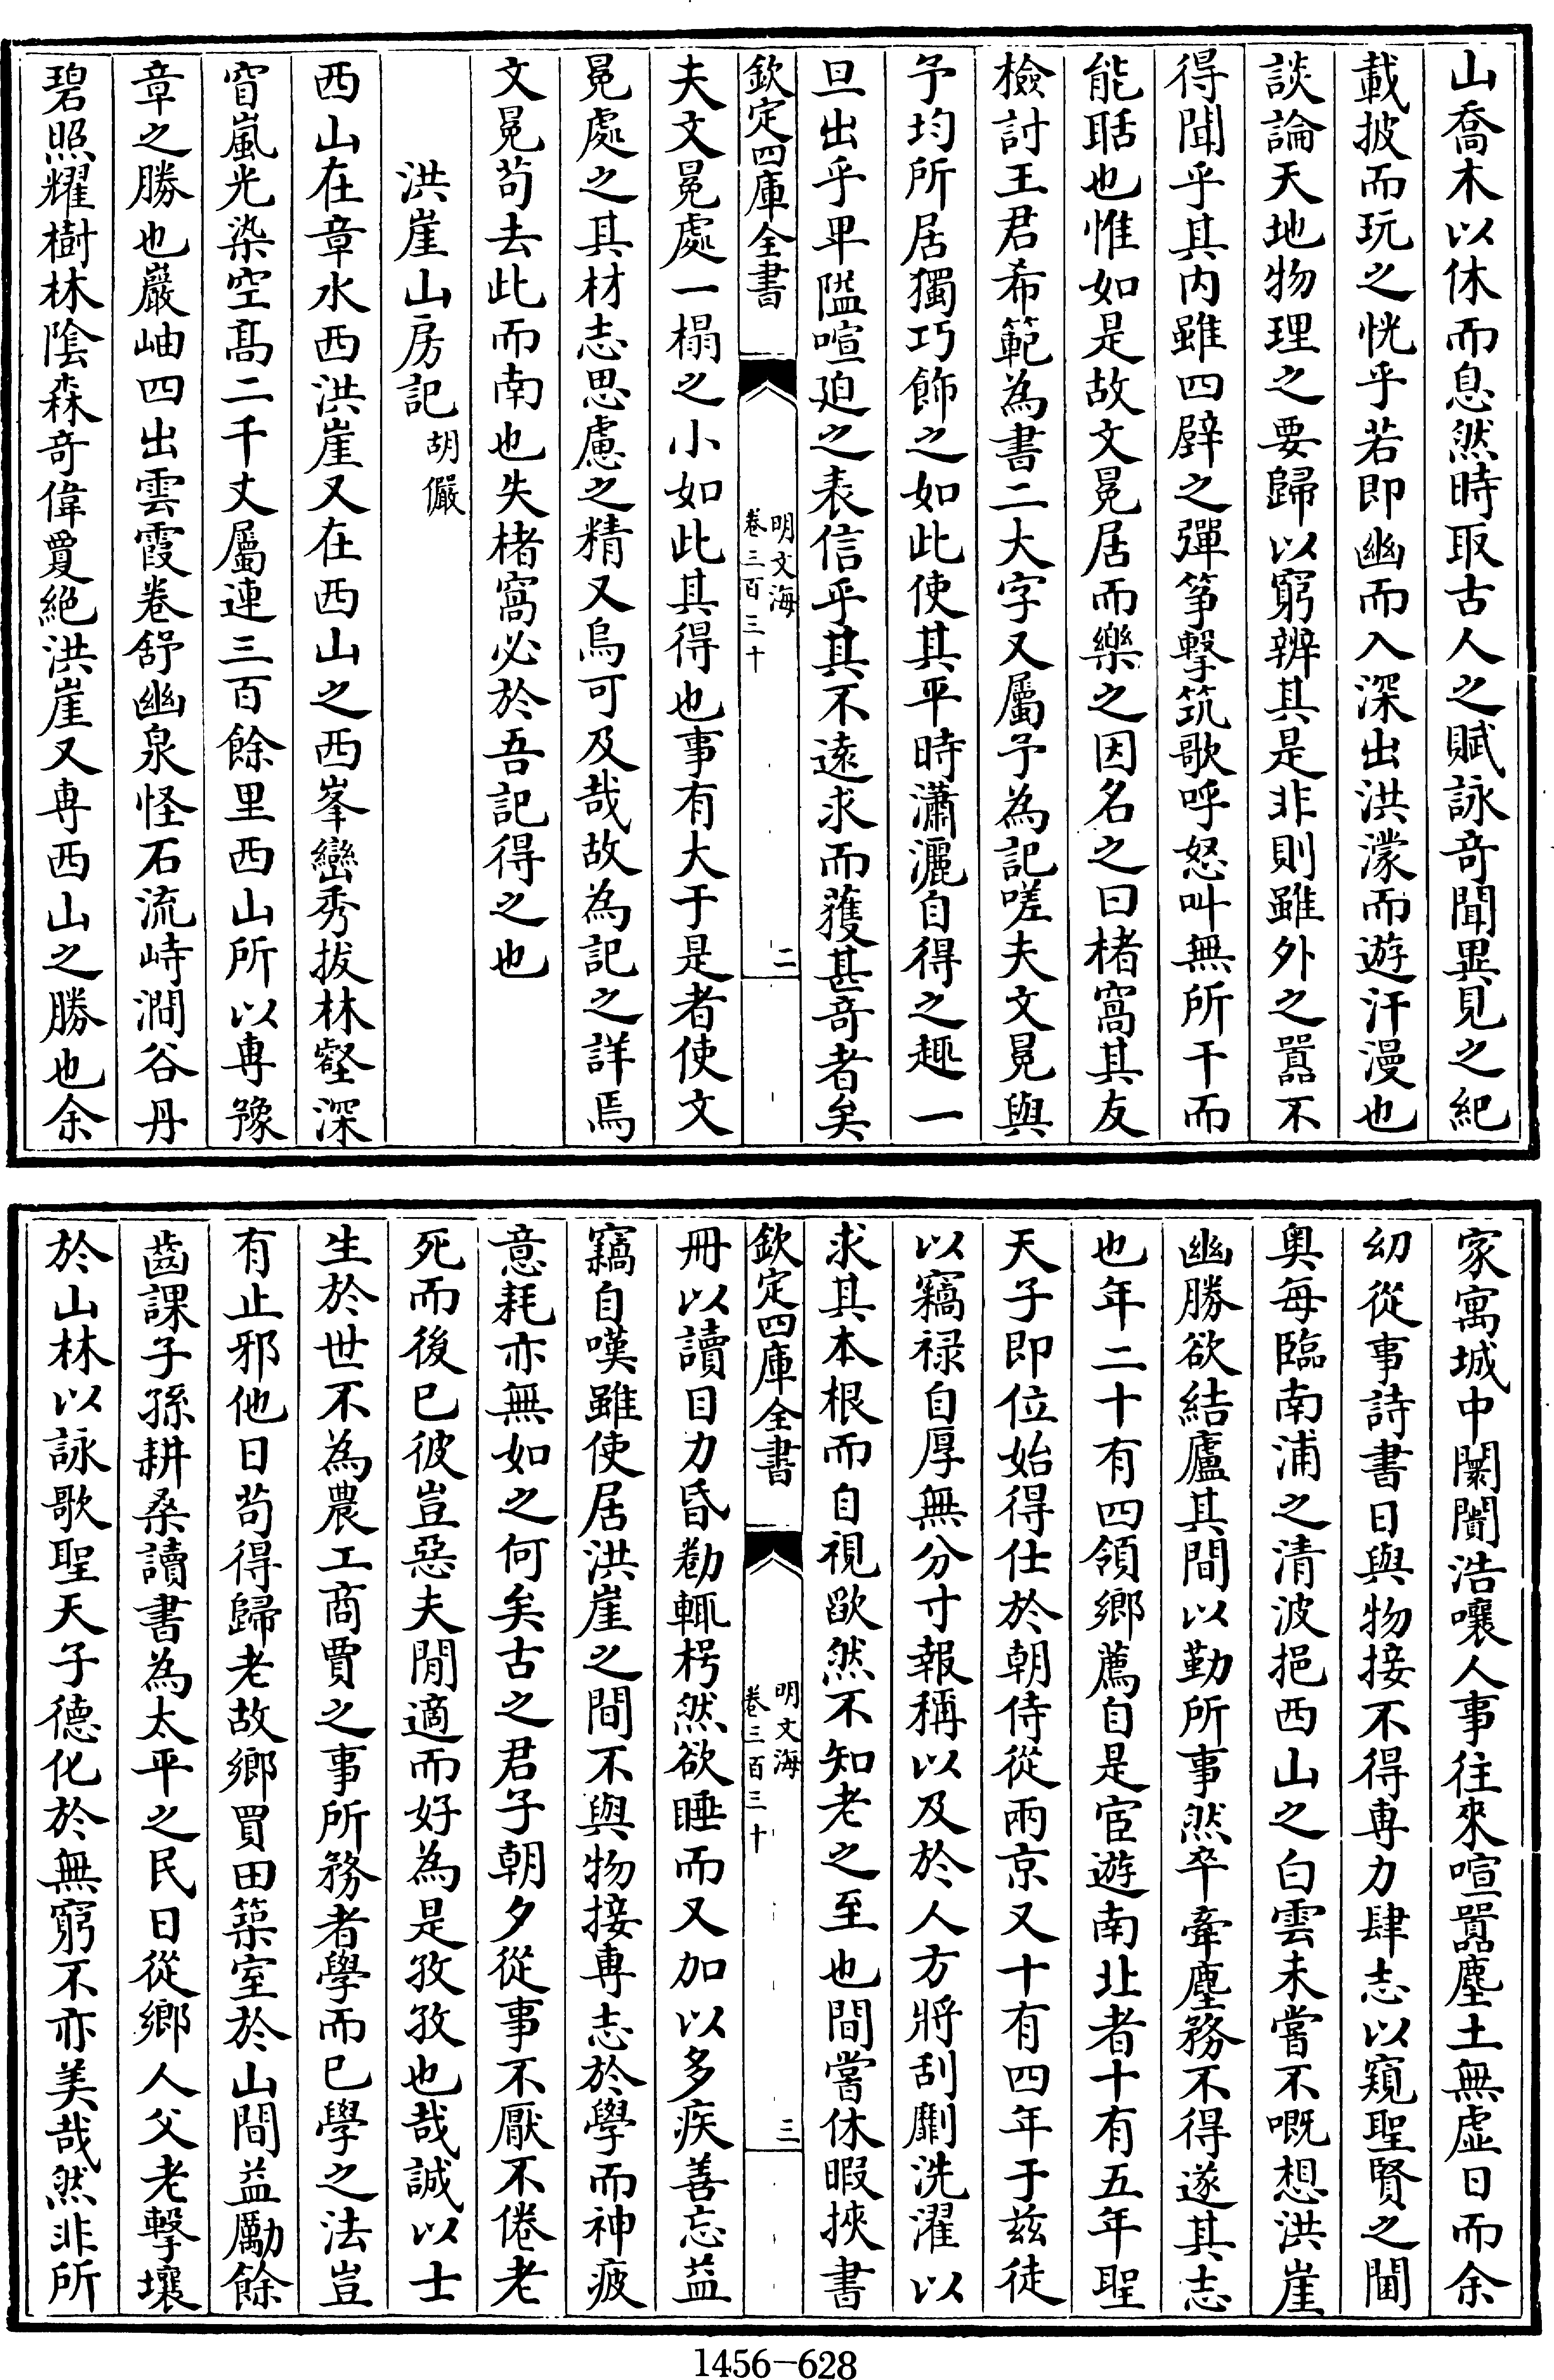 山喬木以休而息然時取古人之賦詠奇聞異見之紀
載披而玩之恍乎若即幽而入深出洪濛而遊汗漫也
談論天地物理之要歸以窮辨其是非則雖外之囂不
得聞乎其内雖四壁之彈箏擊筑歌呼怒叫無所干而
能聒也惟如是故文冕居而樂之因名之曰楮窩其友
檢討王君希範為書二大字又屬予為記嗟夫文冕與
予均所居獨巧飾之如此使其平時瀟灑自得之趣一
旦出乎卑隘喧迫之表信乎其不遠求而獲甚奇者矣
欽定四庫全書
明文海
卷三百三十
二
夫文冕處一榻之小如此其得也事有大于是者使文
冕處之其材志思慮之精又烏可及哉故為記之詳焉
文冕苟去此而南也失楮窩必於吾記得之也
洪崖山房記 胡儼
西山在章水西洪崖又在西山之西峯巒秀拔林壑深
窅嵐光染空髙二千丈屬連三百餘里西山所以専豫
章之勝也巖岫四出雲霞卷舒幽泉怪石流峙澗谷丹
碧照耀樹林陰森奇偉敻絶洪崖又専西山之勝也余
家寓城中闤闠浩嚷人事往來喧囂塵土無虚日而余
幼從事詩書日與物接不得専力肆志以窺聖賢之閫
奥每臨南浦之清波挹西山之白雲未嘗不嘅想洪崖
幽勝欲結廬其間以勤所事然卒牽塵務不得遂其志
也年二十有四領鄉薦自是宦遊南北者十有五年聖
天子即位始得仕於朝侍從兩京又十有四年于兹徒
以竊禄自厚無分寸報稱以及於人方將刮劘洗濯以
求其本根而自視歉然不知老之至也間嘗休暇挾書
欽定四庫全書
明文海
卷三百三十
三
冊以讀目力昏勌輒枵然欲睡而又加以多疾善忘益
竊自嘆雖使居洪崖之間不與物接専志於學而神疲
意耗亦無如之何矣古之君子朝夕從事不厭不倦老
死而後已彼豈惡夫閒適而好為是孜孜也哉誠以士
生於世不為農工商賈之事所務者學而已學之法豈
有止邪他日苟得歸老故鄉買田築室於山間益勵餘
齒課子孫耕桑讀書為太平之民日從鄉人父老擊壤
於山林以詠歌聖天子德化於無窮不亦美哉然非所
1456-628